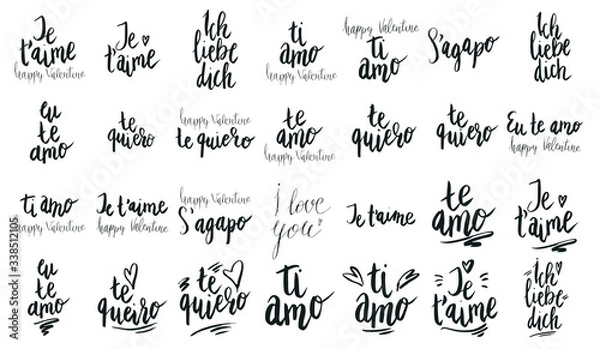 Je
t'aime
happy Valentine
Je
t'aime
Ich
liebe
dich
ti
amo
happy Valentine
happy Valentine
Ti
amo
S'agapo
Ich
liebe
dich
eu
te
amo
te
quiero
happy Valentine
te quiero
te
amo
happy Valentine
te
quiero
te
quiero
Eu te amo
happy Valentine
ti amo
happy Valentine
Je t'aime
happy Valentine
happy Valentine
S'agapo
I love
you
Je t'aime
te
amo
Je
t'aime
eu
te
amo
te
queiro
te
quiero
Ti
amo
ti
amo
Je
t'aime
Ich
liebe
dich
Adobe Stock | #338512105